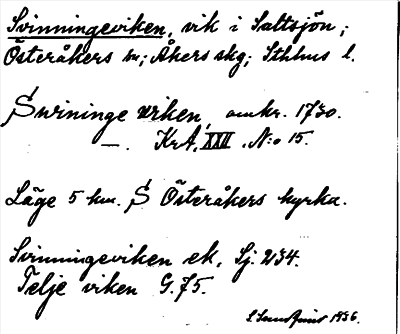 Svinningeviken, vik i Saltsjön;
Österåkers sn; Åkers skg; Sthlms l.
Swininge wiken, omkr. 1730.
—. KrA, XXII, N:o 15.
Läge 5 km. S Österåkers kyrka.
Svinningeviken ek. Sj. 234.
Telje viken G. 75.
1936.